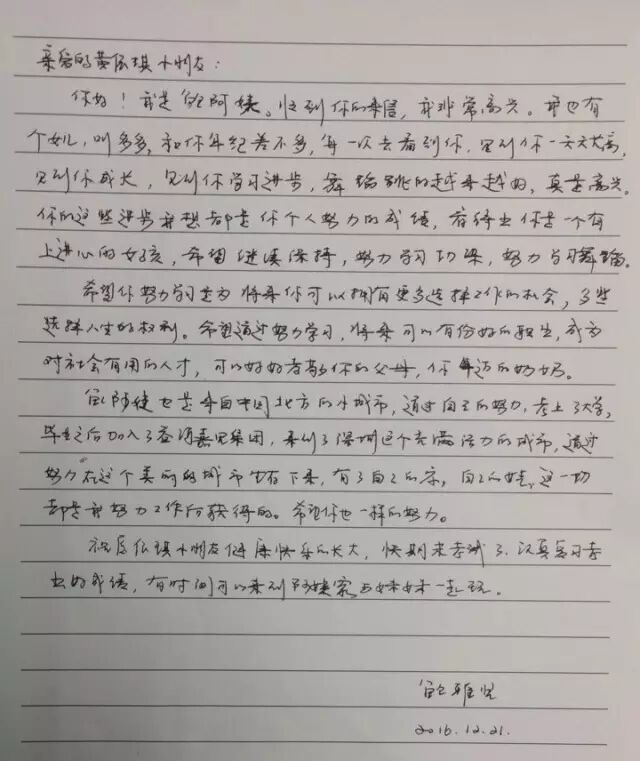 亲爱的黄依琪小朋友：
你好！我是鲍阿姨。收到你的来信，我非常高兴。我也有
个女儿，叫多多，和你年纪差不多，每一次去看到你，见到你一天天长高，
见到你成长，见到你学习进步，舞蹈跳的越来越好，真是高兴。
你的这些进步我想都是你个人努力的成绩，看得出你是一个有
上进心的女孩，希望继续保持，努力学习功课，努力学习舞蹈。
希望你努力学习是为将来你可以拥有更多选择工作的机会，多些
选择人生的权利。希望通过努力学习，将来可以有份好的职业，成为
对社会有用的人才，可以好好孝敬你的父母，你年迈的奶奶。
鲍阿姨也是来自中国北方的小城市，通过自己的努力，考上了大学，
毕业之后加入了香港嘉里集团，来到了深圳这个充满活力的城市，通过
努力在这个美丽的城市生存下来，有了自己的家，自己的娃，这一切
都是我努力工作所获得的。希望你也一样的努力。
祝愿依琪小朋友健康快乐的长大，快期末考试了，认真复习考
出好成绩，有时间可以来到阿姨家与妹妹一起玩。
鲍雅悦
2016.12.21.